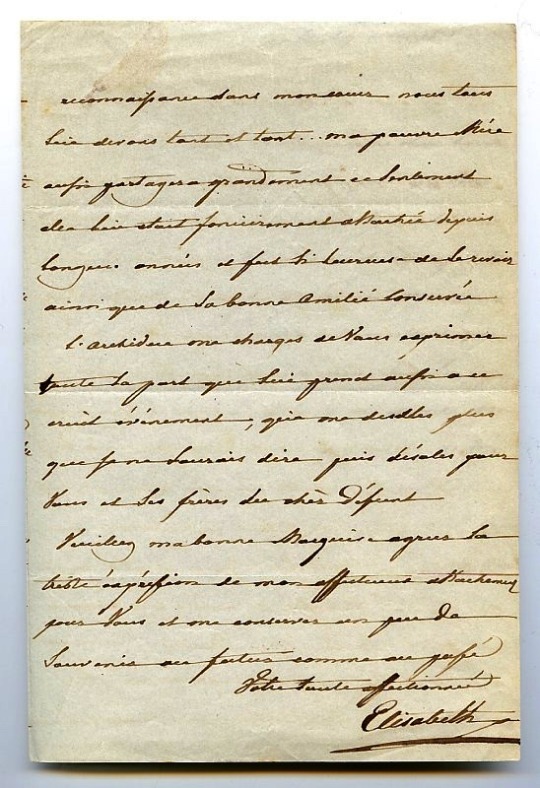 reconnaissance dans mon cœur nous tous
Lui devons tant et tant... ma pauvre Mère
aussi partagera grandement ce sentiment
elle Lui était foncièrement attachée depuis
longues années et fut si heureuse de Le revoir
ainsi que de Sa bonne Amitié Conservée
L'archiduc me charge de Vous exprimer
toute la part que Lui prend aussi a ce
cruel événement, qui me desole plus
que je ne Saurais dire puis désolée pour
Vous et Ses frères du cher Défunt
Veuillez ma bonne Marquise agréer la
triste expression de mon affectueux attachement
pour Vous et me conserver un peu de
Souvenir au futur comme au passé
Votre toute affectionnée
Elisabeth